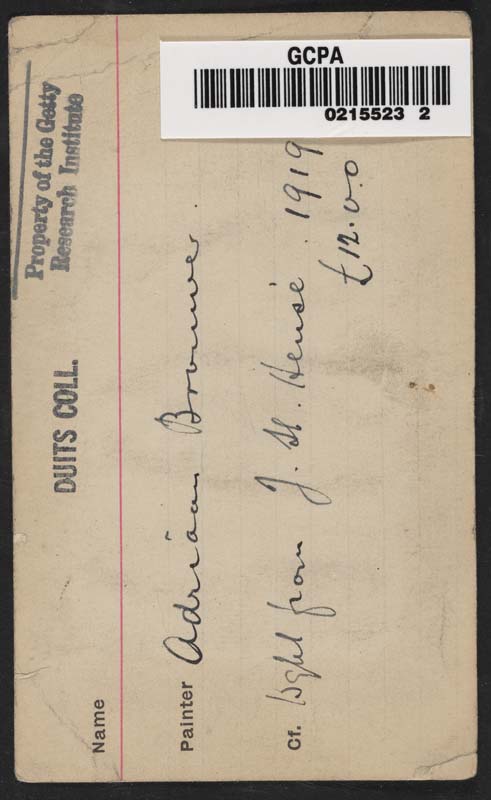 GCPA
0215523 2
Property of the Getty
Research Institute
DUITS COLL.
Name
Painter Adriaan Brouwer.
Cf. bght from J. H. Heusé. 1919
£12.0.0